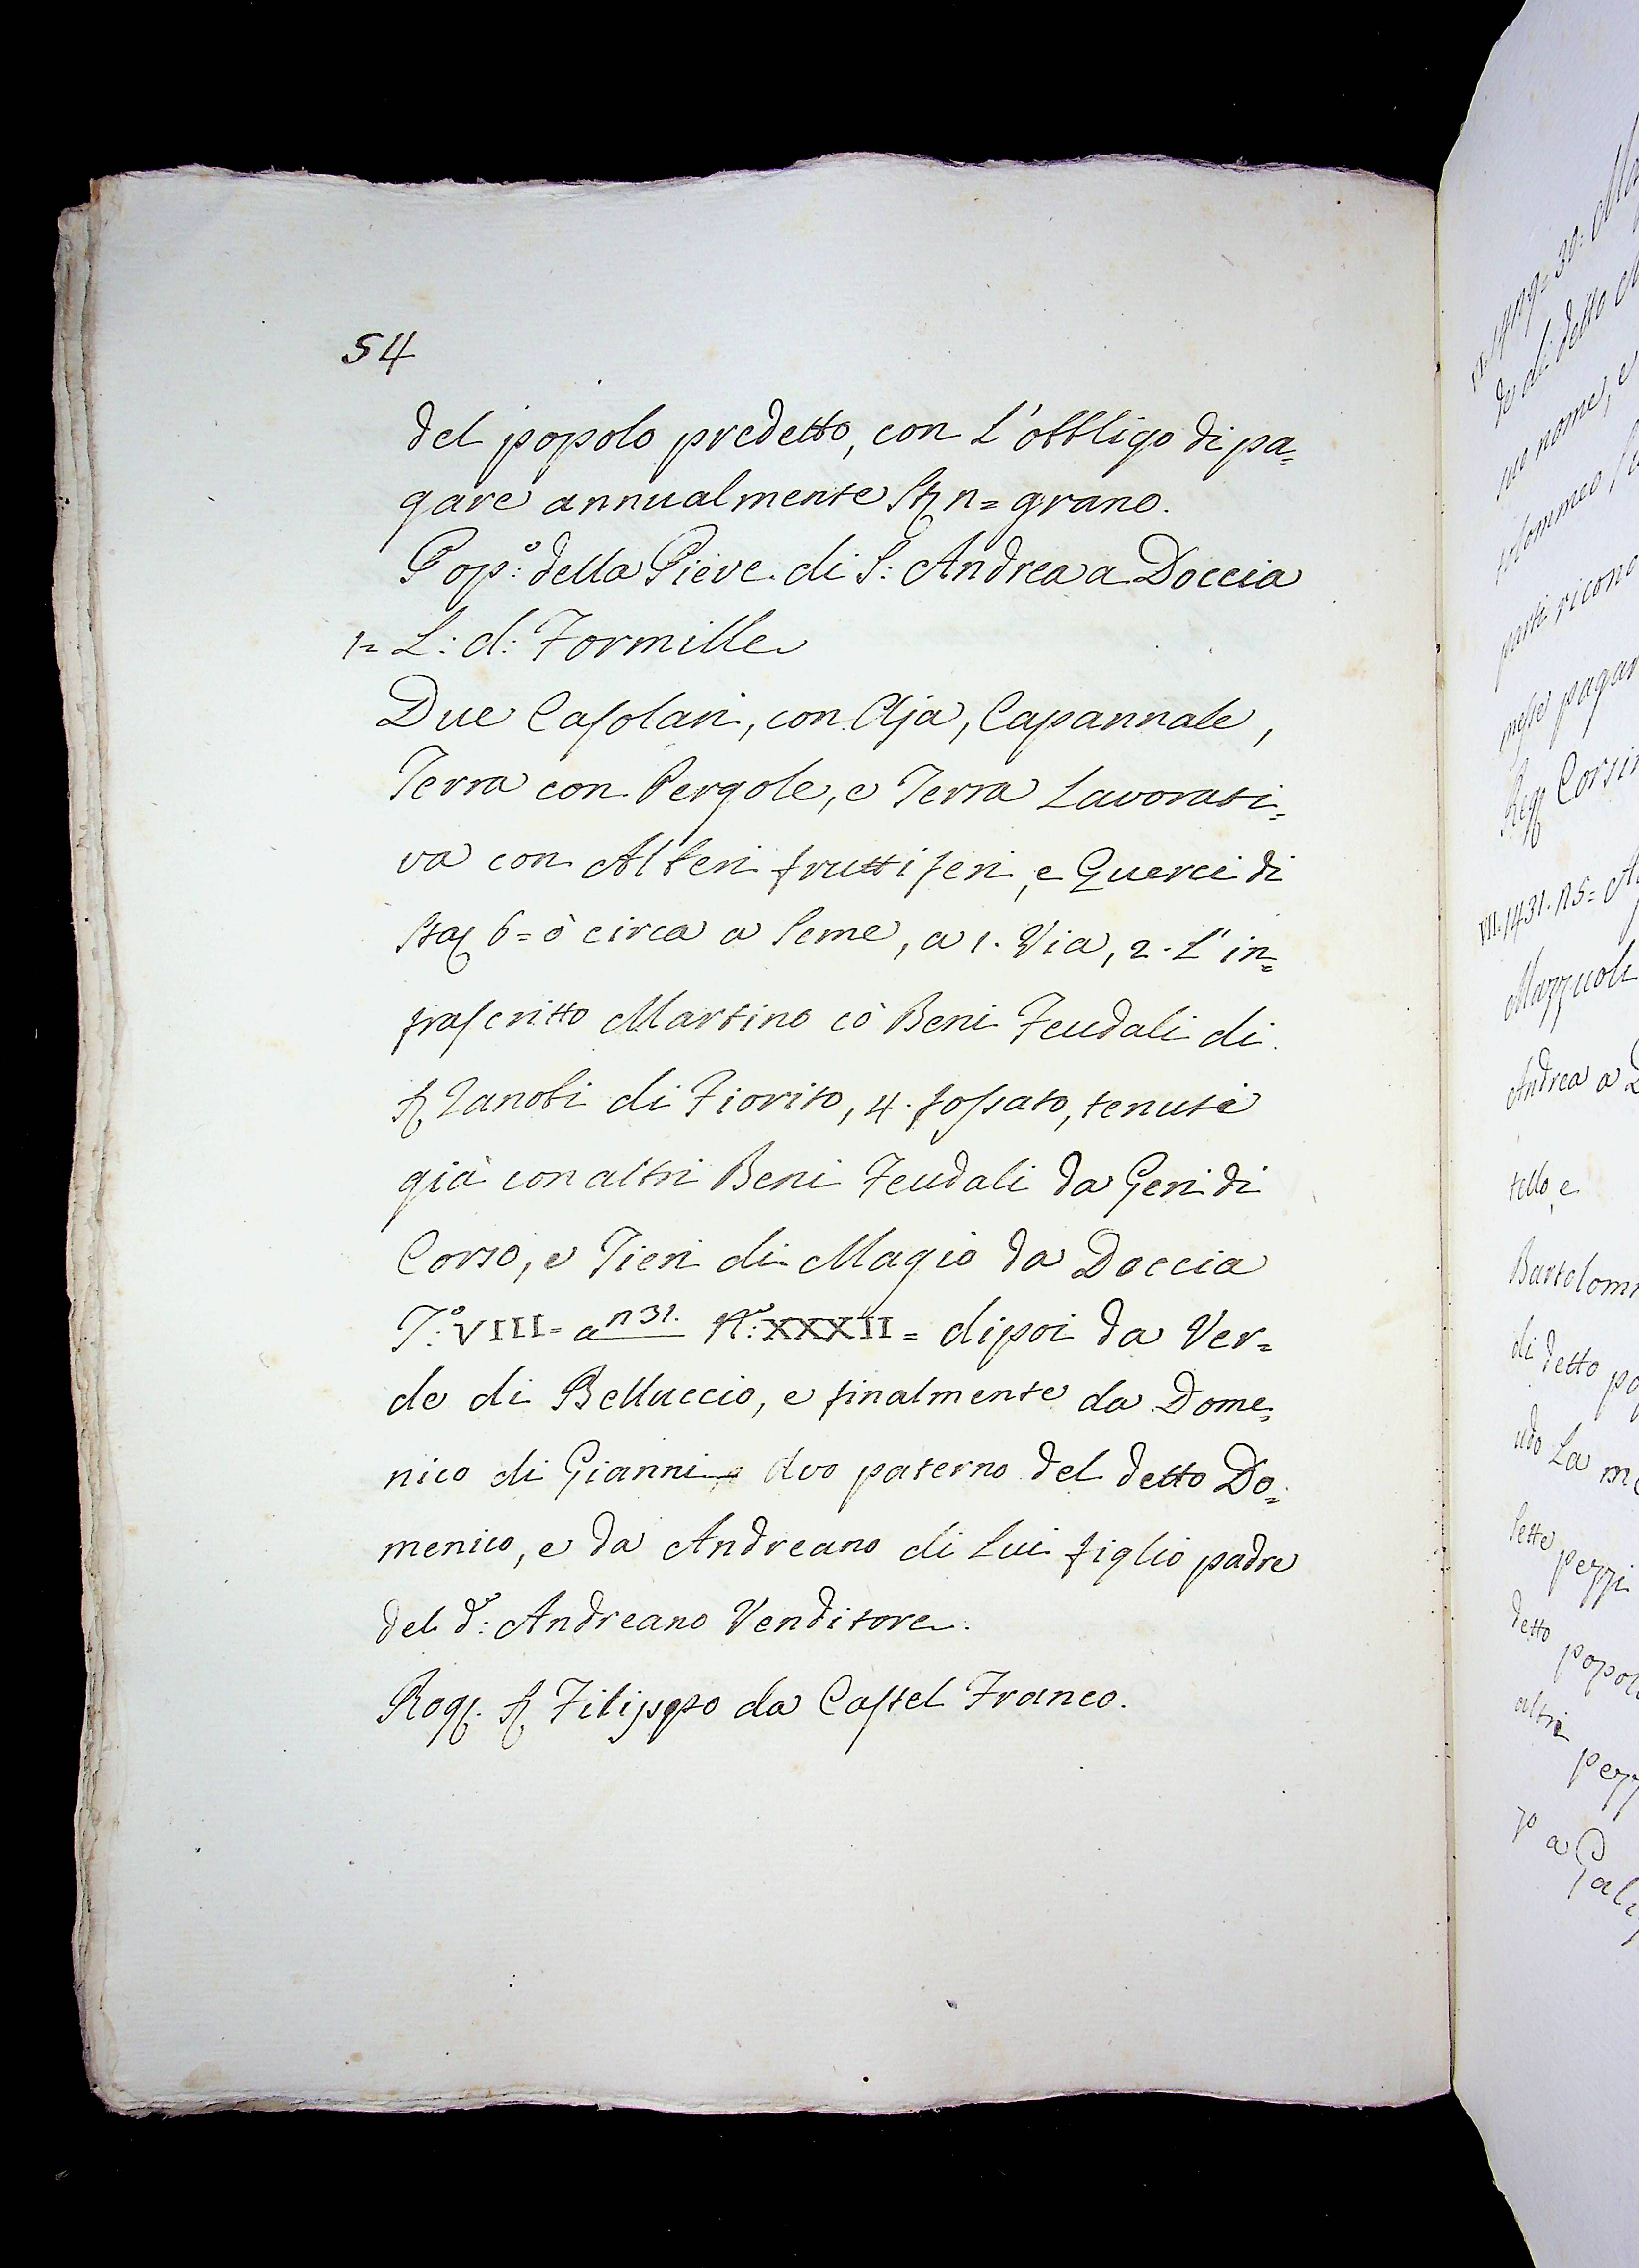 54
del popolo predetto, con L'obbligo di pa=
gare annualmente n= grano.
Pop:° della Pieve di S: Andrea a Doccia
1= L: d: Formille
Due Casolari, con Aja, Capannale,
Terra con Pergole, e Terra Lavorati=
va con Alberi fruttiferi, e Querci di
Sta 6= ò circa a Seme, a 1. Via, 2. L'in=
frascritto Martino cò Beni Feudali di
Zanobi di Fiorito, 4. fossato, tenuti
già con altri Beni Feudali da Geri di
Corso, e Tieri di Magio da Doccia
T:° VIII= a n31. N:° XXXII= dipoi da Ver=
de di Belluccio, e finalmente da Dome=
nico di Gianni, Avo paterno del detto Do=
menico, e da Andreano di Lui figlio padre
del d:° Andreano Venditore.
Rog. Filippo da Castel Franco.
VII. 1431. n5=
Mazzuoli
Andrea a D
tello, e
Bartolom
di detto po
udo La me
Sette pezzi
detto popol
altri pezz
zo a Gali